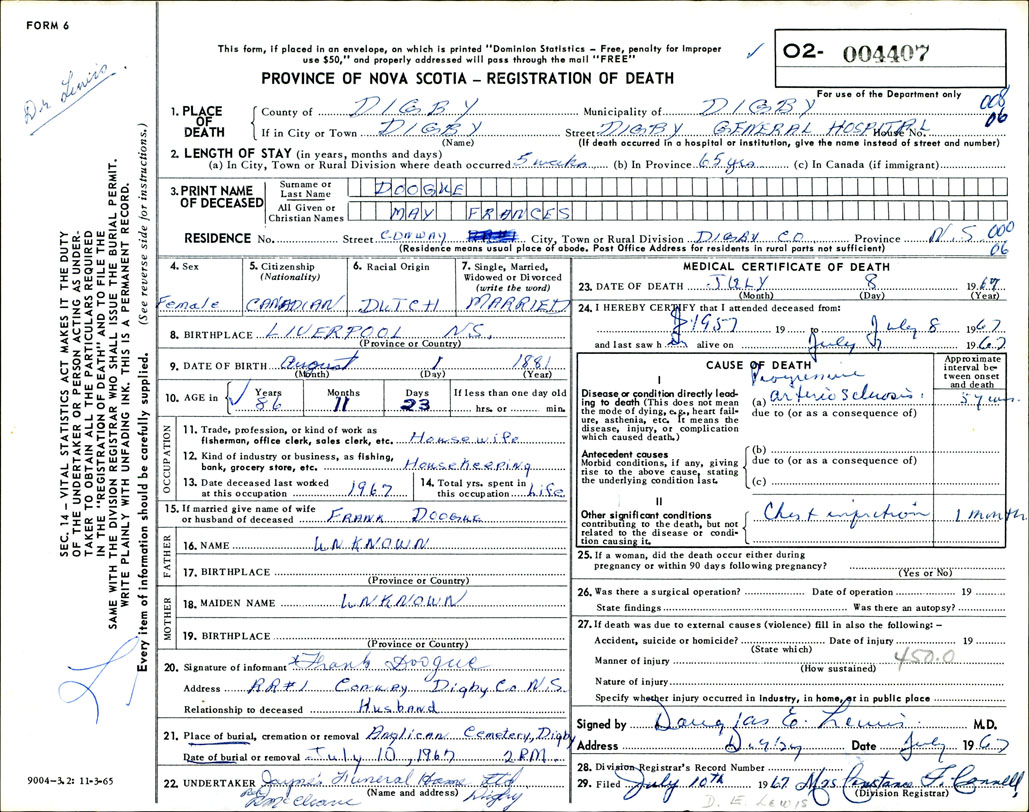 FORM 6
This form, if placed in an envelope, on which is printed "Dominion Statistics – Free, penalty for improper
use $50," and properly addressed will pass through the mail "FREE"
PROVINCE OF NOVA SCOTIA – REGISTRATION OF DEATH
✓
O2- 004407
For use of the Department only
008
06
Dr Lewis.
SEC. 14 – VITAL STATISTICS ACT MAKES IT THE DUTY
OF THE UNDERTAKER OR PERSON ACTING AS UNDER-
TAKER TO OBTAIN ALL THE PARTICULARS REQUIRED
IN THE "REGISTRATION OF DEATH" AND TO FILE THE
SAME WITH THE DIVISION REGISTRAR WHO SHALL ISSUE THE BURIAL PERMIT.
WRITE PLAINLY WITH UNFADING INK. THIS IS A PERMANENT RECORD.
Every item of information should be carefully supplied. (See reverse side for instructions.)
1. PLACE OF DEATH
County of DIGBY Municipality of DIGBY
If in City or Town DIGBY Street DIGBY GENERAL HOSPITAL House No.
(Name) (If death occurred in a hospital or institution, give the name instead of street and number)
2. LENGTH OF STAY (in years, months and days)
(a) In City, Town or Rural Division where death occurred 5 weeks (b) In Province 65 yrs (c) In Canada (if immigrant)
3. PRINT NAME OF DECEASED
Surname or Last Name DOOGUE
All Given or Christian Names MAY FRANCES
RESIDENCE No. Street CONWAY City, Town or Rural Division DIGBY CO Province N.S 000
06
(Residence means usual place of abode. Post Office Address for residents in rural parts not sufficient)
4. Sex
Female
5. Citizenship (Nationality)
CANADIAN
6. Racial Origin
DUTCH
7. Single, Married, Widowed or Divorced (write the word)
MARRIED
8. BIRTHPLACE LIVERPOOL N.S.
(Province or Country)
9. DATE OF BIRTH August 1 1881
(Month) (Day) (Year)
10. AGE in ✓ Years Months Days If less than one day old
86 11 23 hrs. or min.
OCCUPATION
11. Trade, profession, or kind of work as
fisherman, office clerk, sales clerk, etc. Housewife
12. Kind of industry or business, as fishing,
bank, grocery store, etc. Housekeeping
13. Date deceased last worked
at this occupation 1967
14. Total yrs. spent in
this occupation Life
15. If married give name of wife
or husband of deceased FRANK DOOGUE
FATHER
16. NAME UNKNOWN
17. BIRTHPLACE
(Province or Country)
MOTHER
18. MAIDEN NAME UNKNOWN
19. BIRTHPLACE
(Province or Country)
20. Signature of informant *Frank Doogue
Address RR#1 Conway Digby Co N.S.
Relationship to deceased Husband
21. Place of burial, cremation or removal Anglican Cemetery, Digby
Date of burial or removal July 10, 1967 2 P.M.
22. UNDERTAKER Jayne's Funeral Home Ltd
(Name and address) Digby
9004-3.2: 11-3-65
MEDICAL CERTIFICATE OF DEATH
23. DATE OF DEATH JULY 8 1967
(Month) (Day) (Year)
24. I HEREBY CERTIFY that I attended deceased from:
1957 19 to July 8 1967
and last saw h alive on July 1967
CAUSE OF DEATH
Approximate interval between onset and death
I
Disease or condition directly lead-
ing to death (This does not mean
the mode of dying, e.g., heart fail-
ure, asthenia, etc. It means the
disease, injury, or complication
which caused death.)
Progressive
(a) arterio sclerosis. 5 yrs.
due to (or as a consequence of)
Antecedent causes
Morbid conditions, if any, giving
rise to the above cause, stating
the underlying condition last.
(b)
due to (or as a consequence of)
(c)
II
Other significant conditions
contributing to the death, but not
related to the disease or condi-
tion causing it.
Chest infection 1 month
25. If a woman, did the death occur either during
pregnancy or within 90 days following pregnancy?
(Yes or No)
26. Was there a surgical operation? Date of operation 19
State findings Was there an autopsy?
27. If death was due to external causes (violence) fill in also the following: –
Accident, suicide or homicide? Date of injury 19
(State which)
Manner of injury 450.0
(How sustained)
Nature of injury
Specify whether injury occurred in Industry, in home, or in public place
Signed by Douglas E. Lewis. M.D.
Address Digby Date July 1967
28. Division Registrar's Record Number
29. Filed July 10th 1967 Mrs Constance F. Connell
(Division Registrar)
D. E. LEWIS